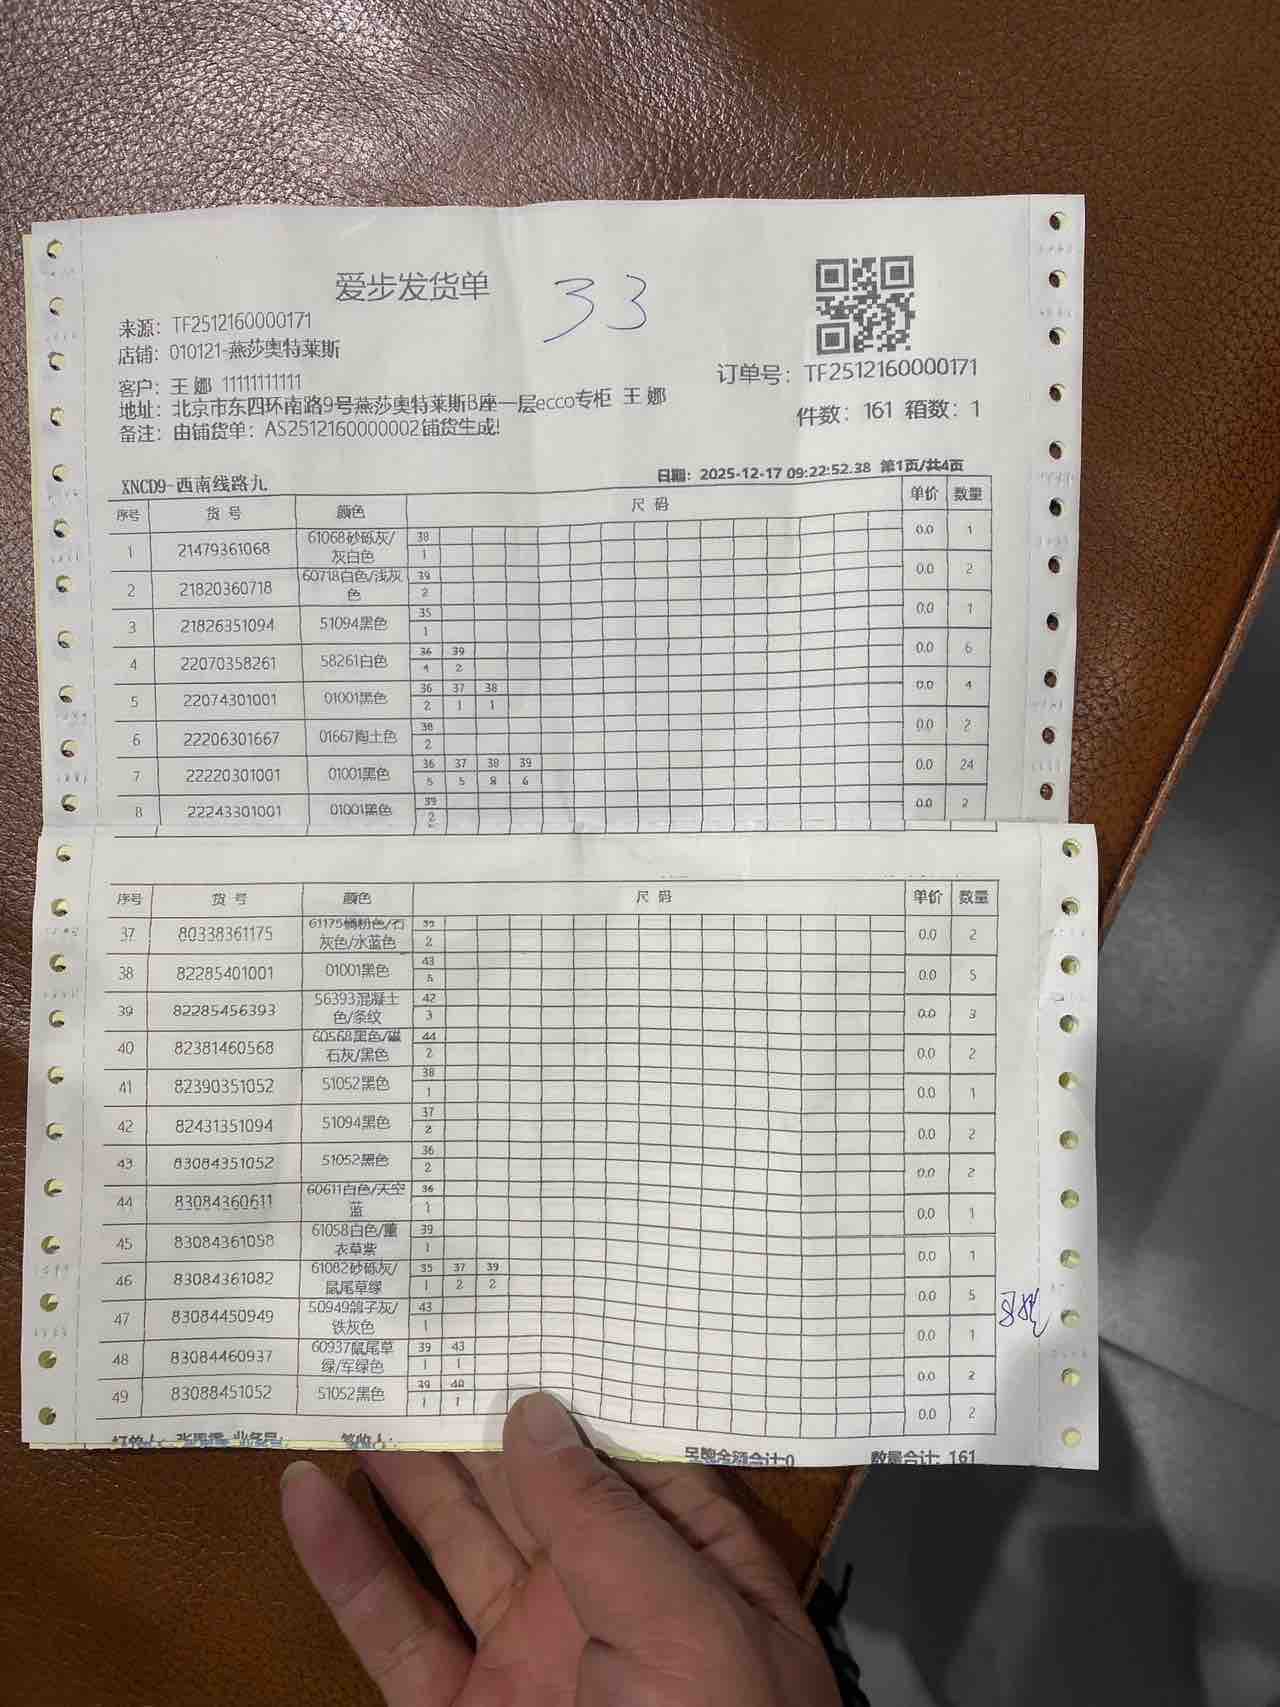 爱步发货单
33
来源：TF2512160000171
店铺：010121-燕莎奥特莱斯
客户：王 娜 11111111111
订单号：TF2512160000171
地址：北京市东四环南路9号燕莎奥特莱斯B座一层ecco专柜 王 娜
件数：161 箱数：1
备注：由铺货单：AS2512160000002铺货生成!
日期：2025-12-17 09:22:52.38 第1页/共4页
XNCD9-西南线路九
序号 货 号 颜色 尺 码 单价 数量
1 21479361068 61068砂砾灰/灰白色 38 0.0 1
1
2 21820360718 60718白色/浅灰色 39 0.0 2
2
3 21826351094 51094黑色 35 0.0 1
1
4 22070358261 58261白色 36 39 0.0 6
4 2
5 22074301001 01001黑色 36 37 38 0.0 4
2 1 1
6 22206301667 01667陶土色 38 0.0 2
2
7 22220301001 01001黑色 36 37 38 39 0.0 24
5 5 8 6
8 22243301001 01001黑色 39 0.0 2
2
序号 货 号 颜色 尺 码 单价 数量
37 80338361175 61175橘粉色/石灰色/水蓝色 39 0.0 2
2
38 82285401001 01001黑色 43 0.0 5
5
39 82285456393 56393混凝土色/条纹 42 0.0 3
3
40 82381460568 60568黑色/磁石灰/黑色 44 0.0 2
2
41 82390351052 51052黑色 38 0.0 1
1
42 82431351094 51094黑色 37 0.0 2
2
43 83084351052 51052黑色 36 0.0 2
2
44 83084360611 60611白色/天空蓝 36 0.0 1
1
45 83084361058 61058白色/薰衣草紫 39 0.0 1
1
46 83084361082 61082砂砾灰/鼠尾草绿 35 37 39 0.0 5
1 2 2
47 83084450949 50949鸽子灰/铁灰色 43 0.0 1
1
48 83084460937 60937鼠尾草绿/军绿色 39 43 0.0 2
1 1
49 83088451052 51052黑色 39 40 0.0 2
1 1
业务员: 签收人:
吊牌金额合计:0 数量合计: 161